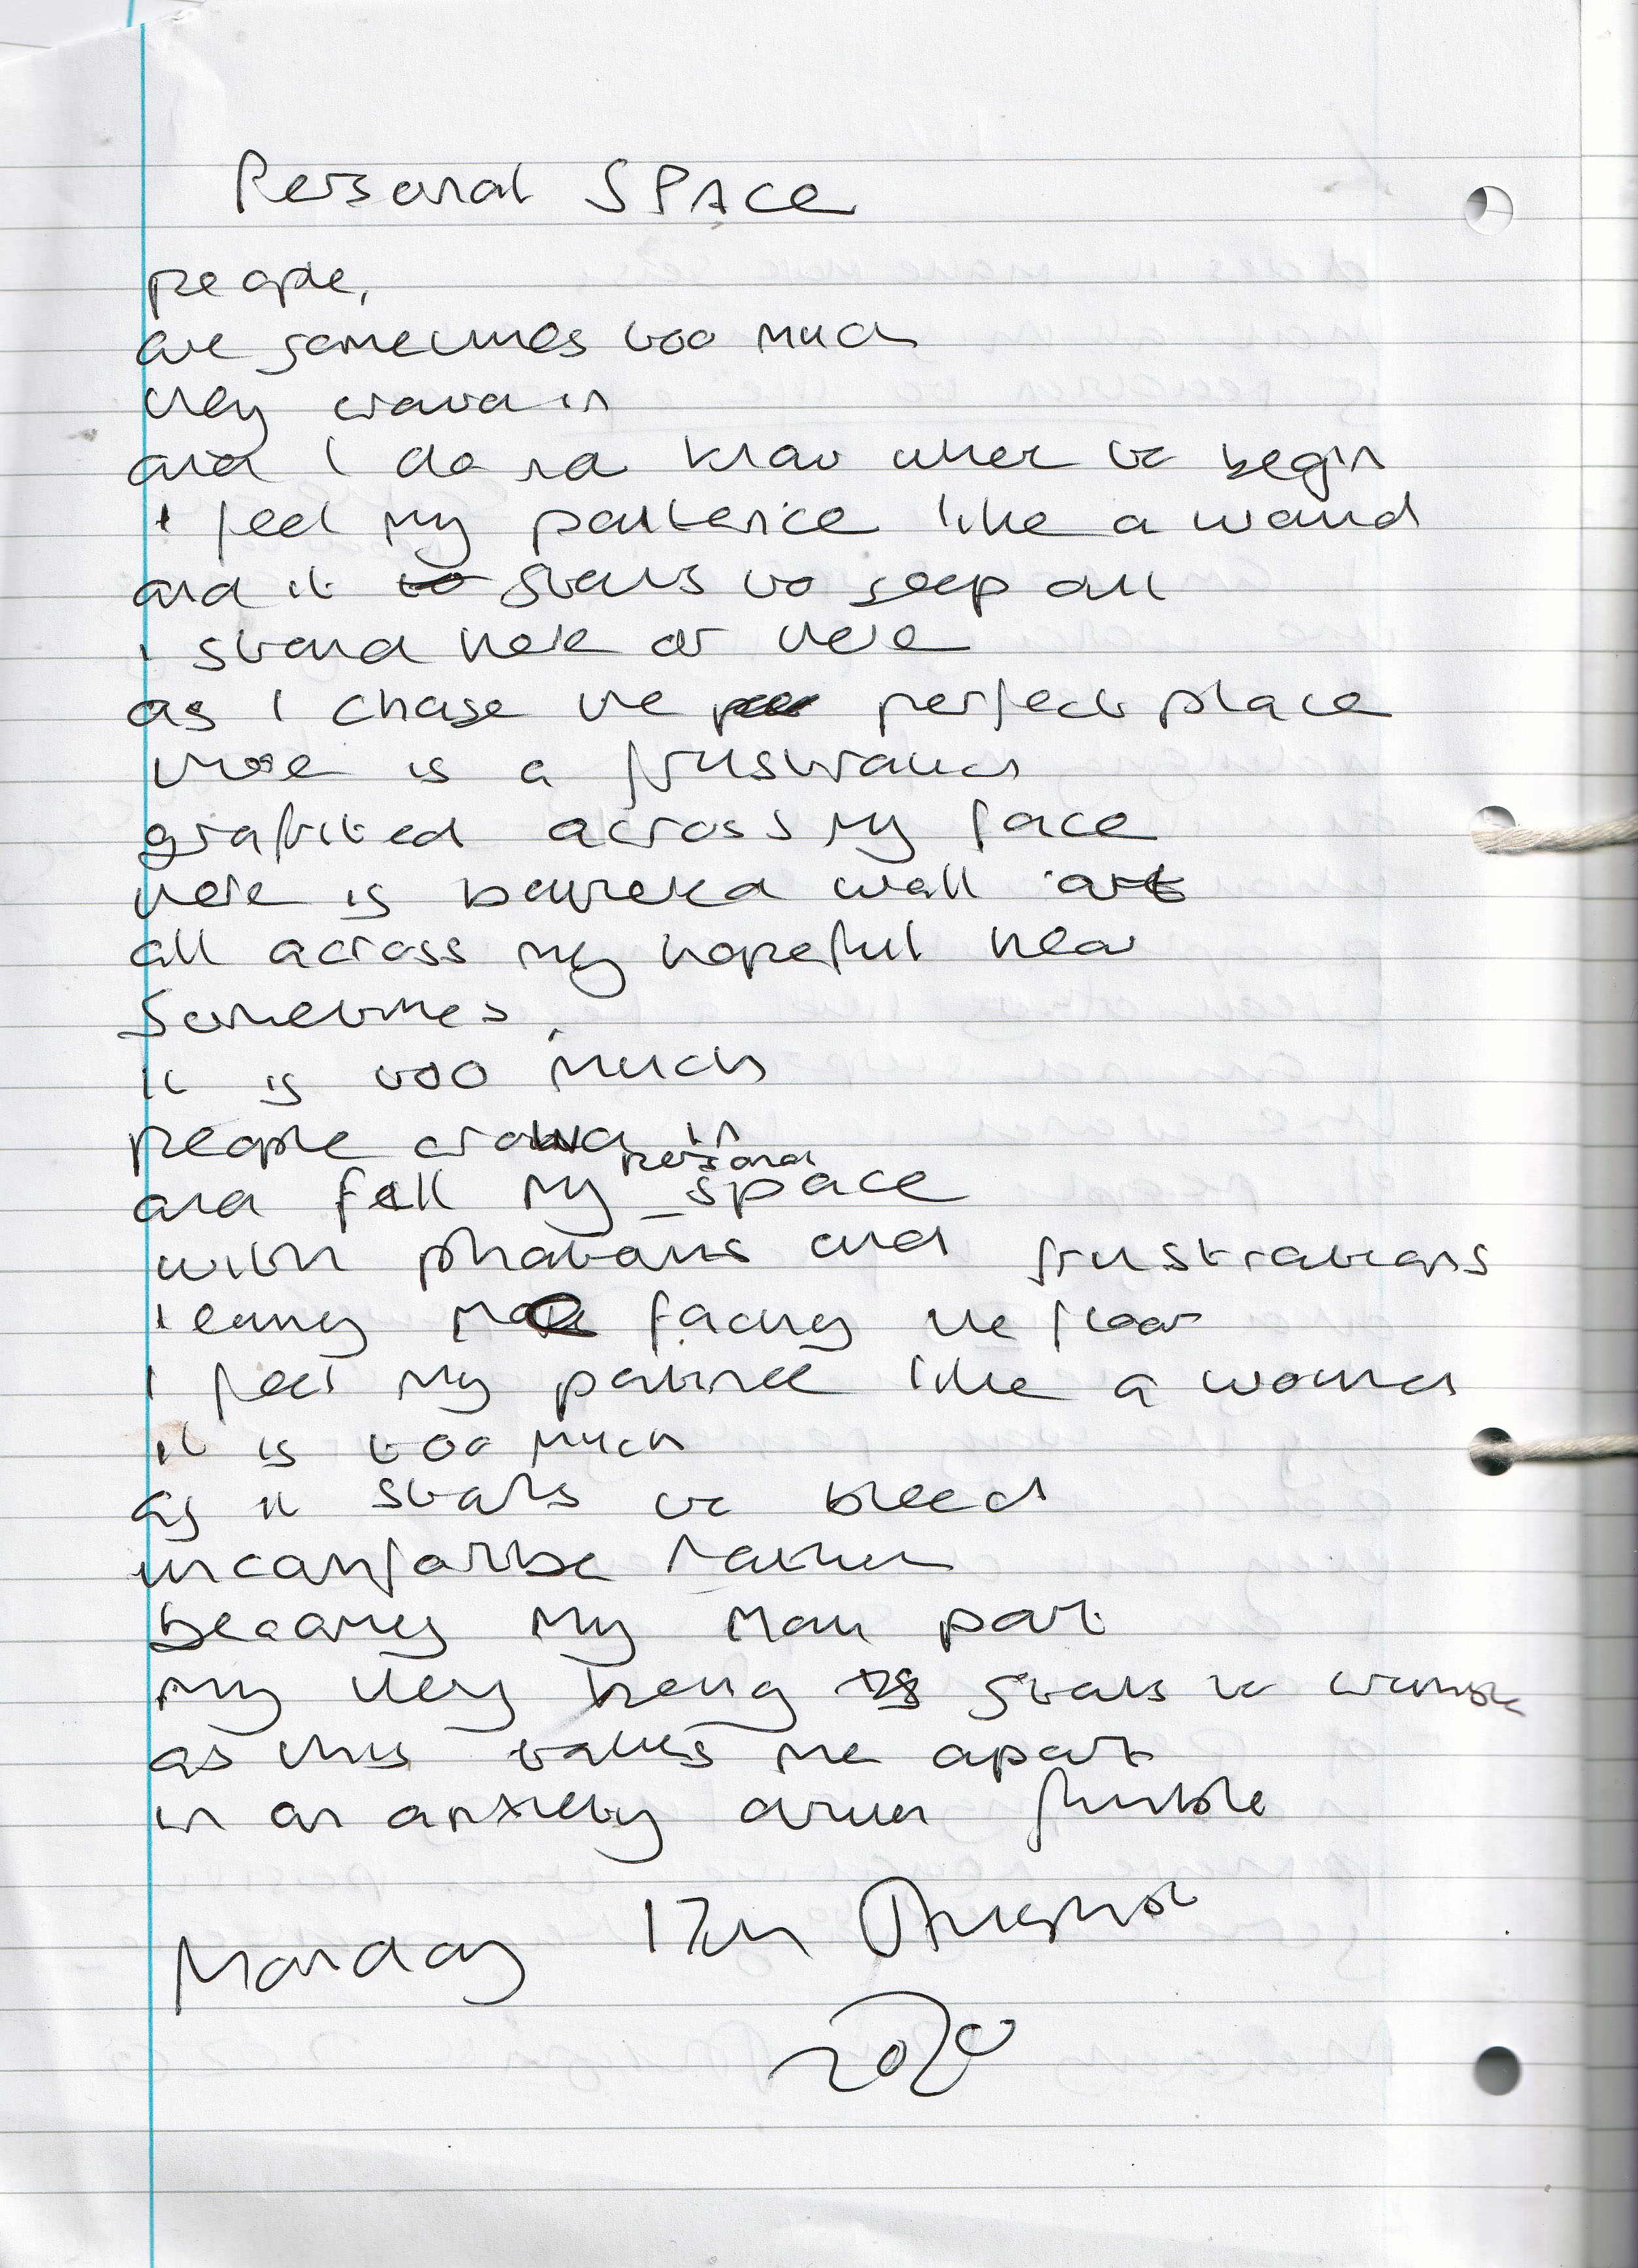 Personal SPACE
people,
are sometimes too much
they crowd in
and I do not know where to begin
I feel my patience like a wound
and it starts to seep out
I stand here or there
as I chase the perfect place
there is a frustration
grafitied across my face
here is battered wall art
all across my hopeful heart
Sometimes,
it is too much
people crowd in
and fill my personal space
with phobias and frustrations
leaving me facing the floor
I feel my patience like a wound
it is too much
as it starts to bleed
uncomfortable
becoming my main part
my very being starts to crumble
as this takes me apart
in an anxiety driven fumble
Monday 17th August
2020